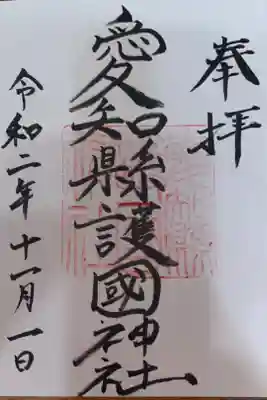 奉拝
愛知縣護國神社
令和二年十一月一日